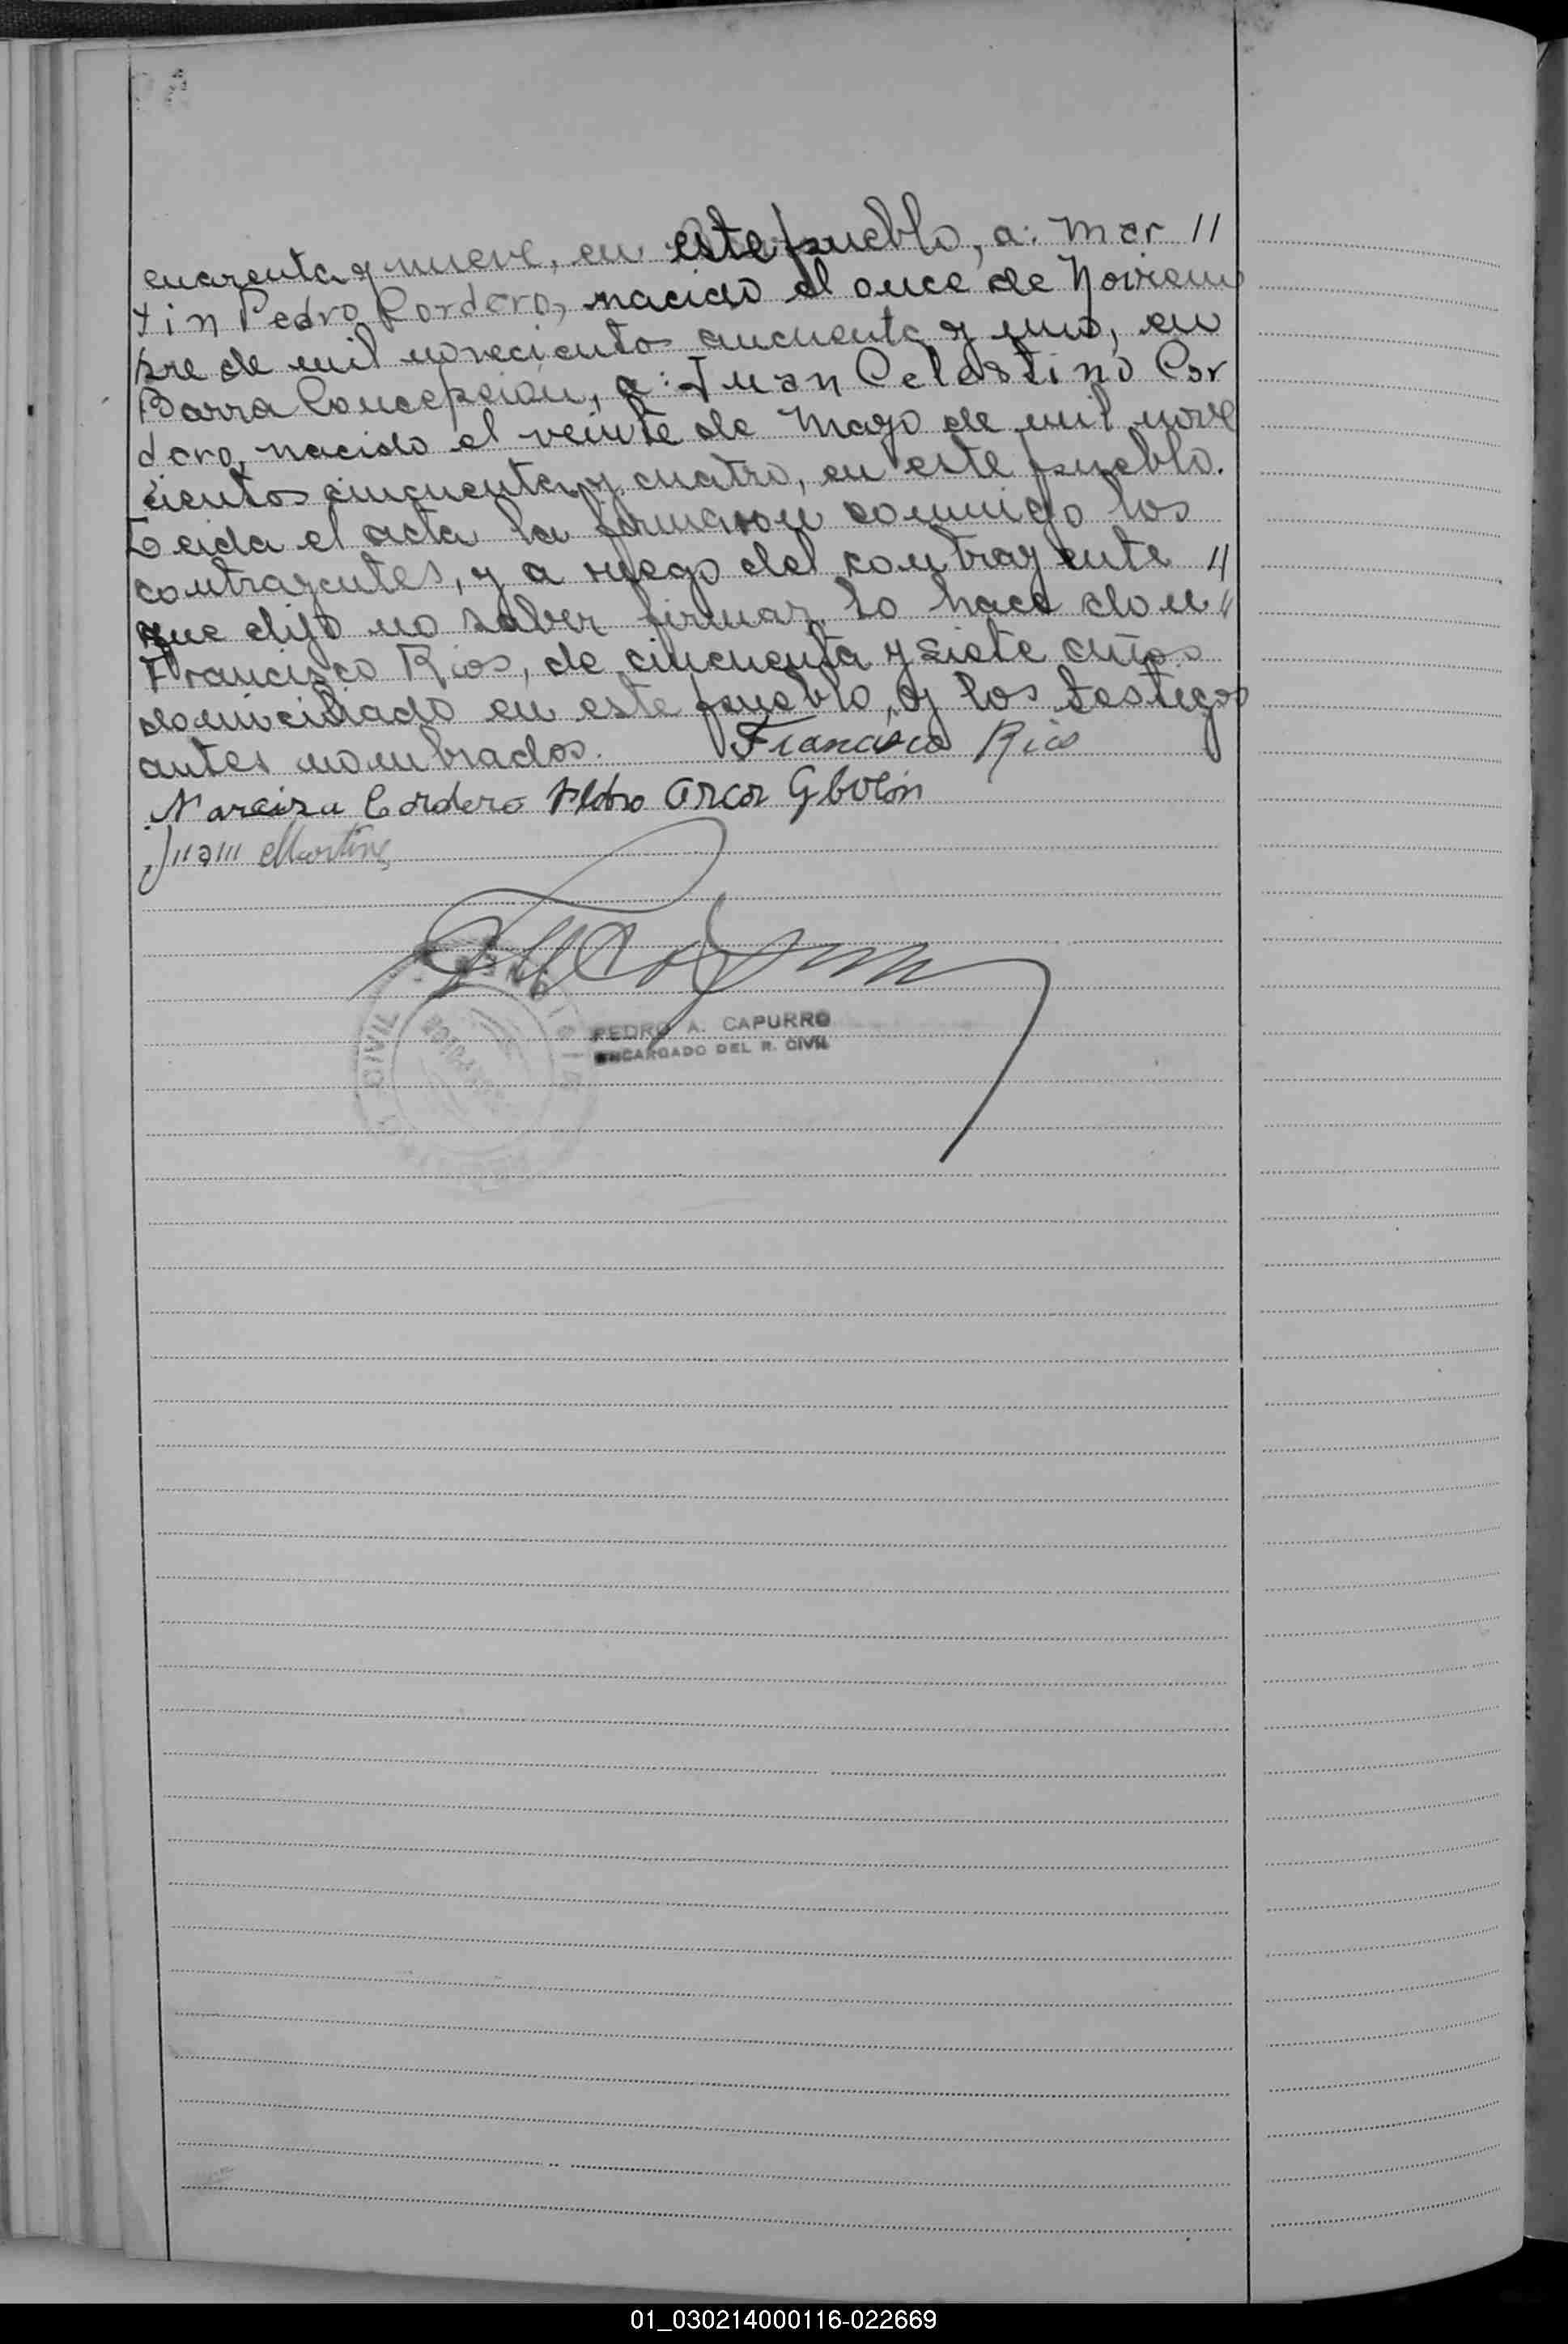 cuarenta y nueve, en este pueblo, a: Mar //
tin Pedro Cordero, nacido el once de Noviem
bre de mil novecientos cincuenta y uno, en
Barra Concepción, a: Juan Celestino Cor
dero, nacido el veinte de Mayo de mil nove
cientos cincuenta y cuatro, en este pueblo.
Leida el acta la firmaron conmigo los
contrayentes, y a ruego del contrayente //
que dijo no saber firmar, lo hace don //
Francisco Rios, de cincuenta y siete años
domiciliado en este pueblo, y los testigos
antes nombrados. Francisco Rios
Narcisa Cordero Pedro
Juan Martinez
PEDRO A. CAPURRO
ENCARGADO DEL R. CIVIL
CIVIL
01_030214000116-022669